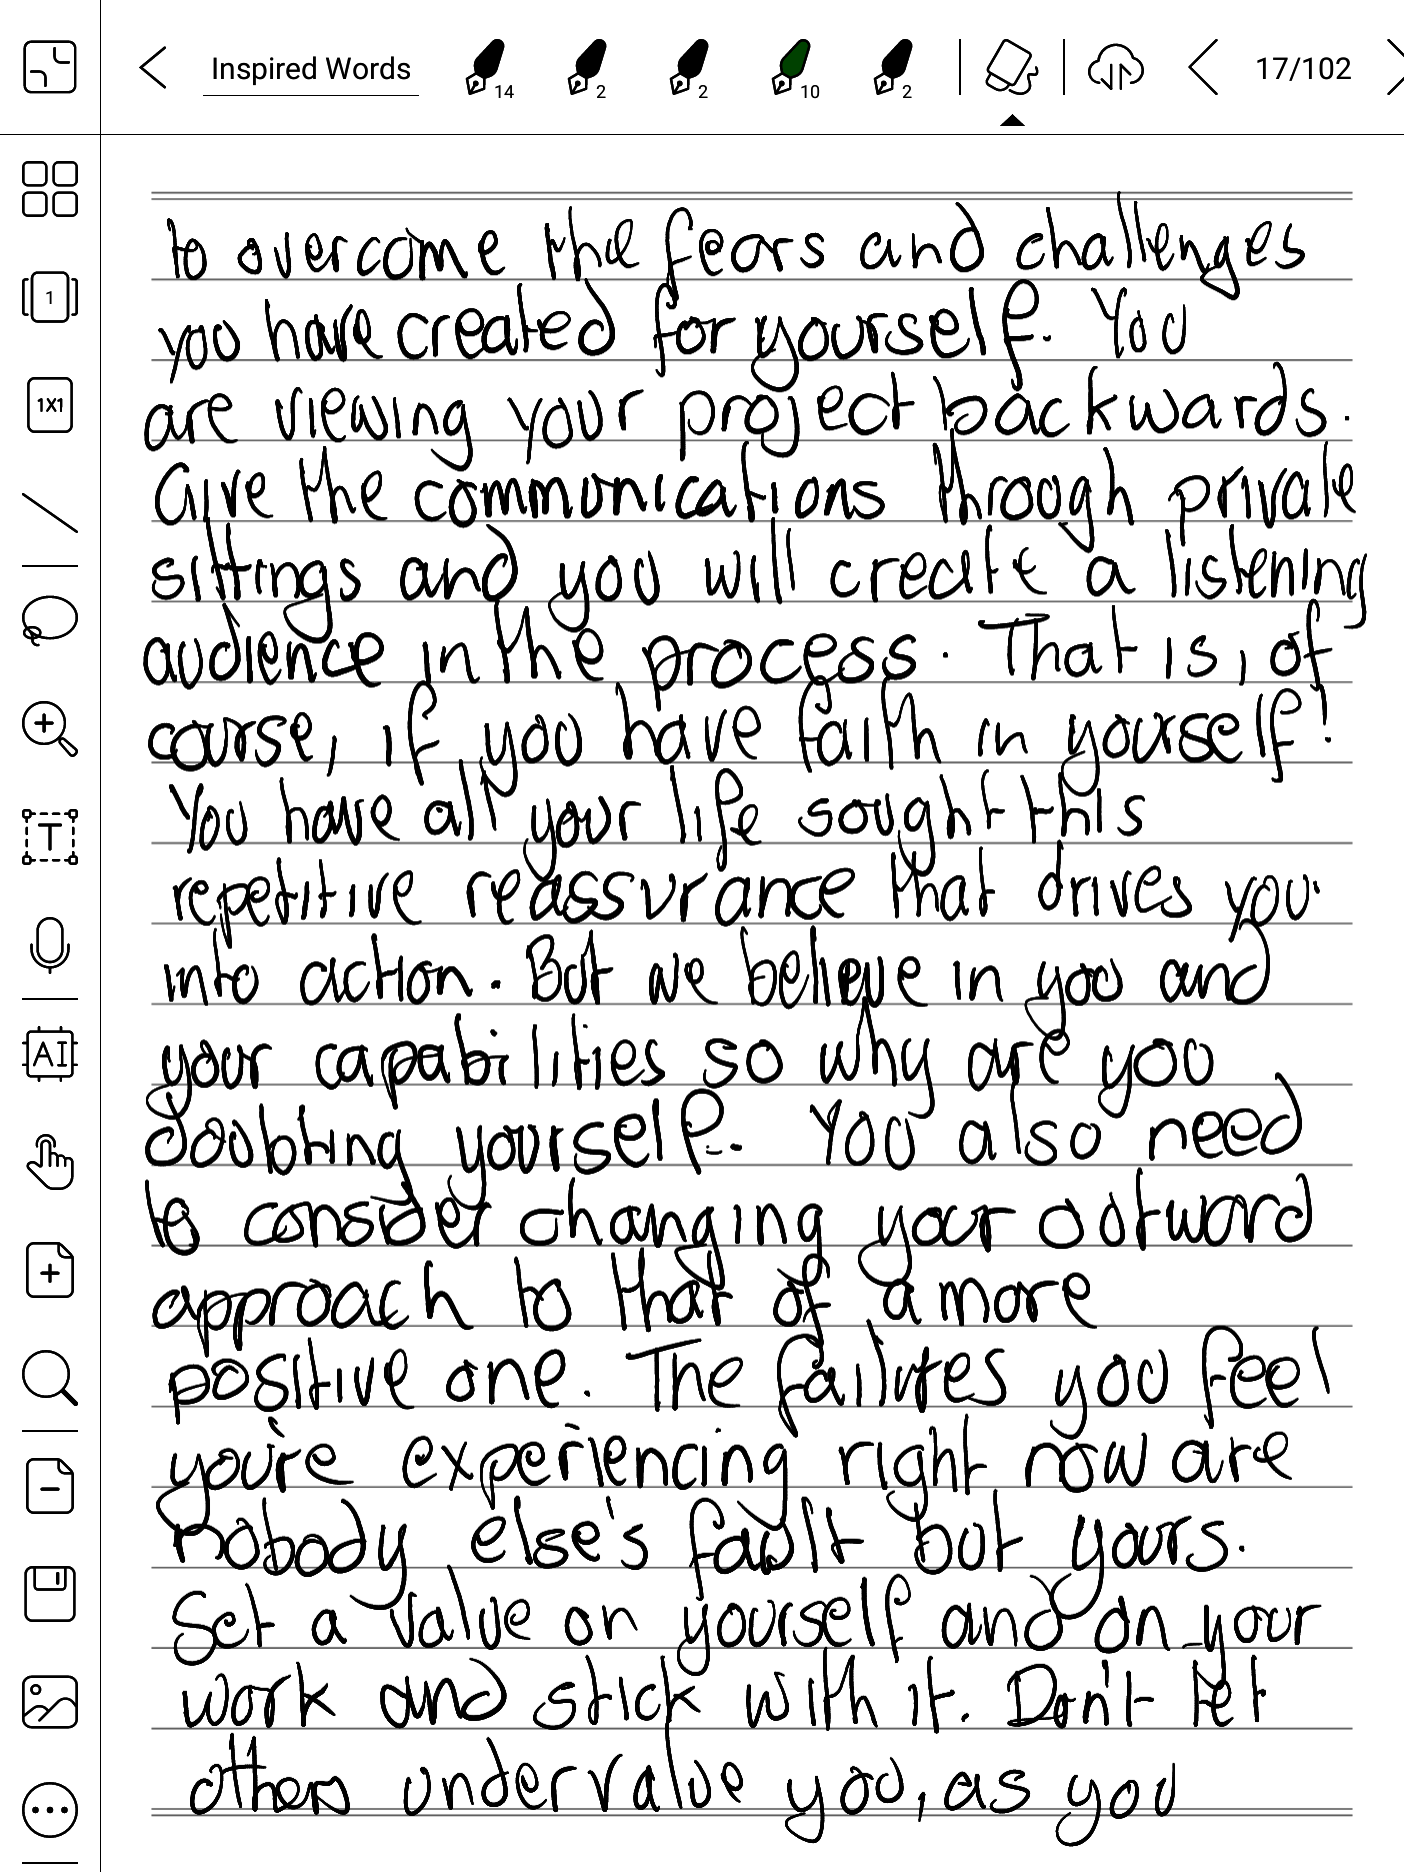 Inspired Words
14
2
2
10
2
17/102
1
1X1
T
AI
to overcome the fears and challenges
you have created for yourself. You
are viewing your project backwards.
Give the communications through private
sittings and you will create a listening
audience in the process. That is, of
course, if you have faith in yourself!
You have all your life sought this
repetitive reassurance that drives you
into action. But we believe in you and
your capabilities so why are you
doubting yourself. You also need
to consider changing your outward
approach to that of a more
positive one. The failures you feel
you're experiencing right now are
nobody else's fault but yours.
Set a value on yourself and on your
work and stick with it. Don't let
others undervalue you, as you